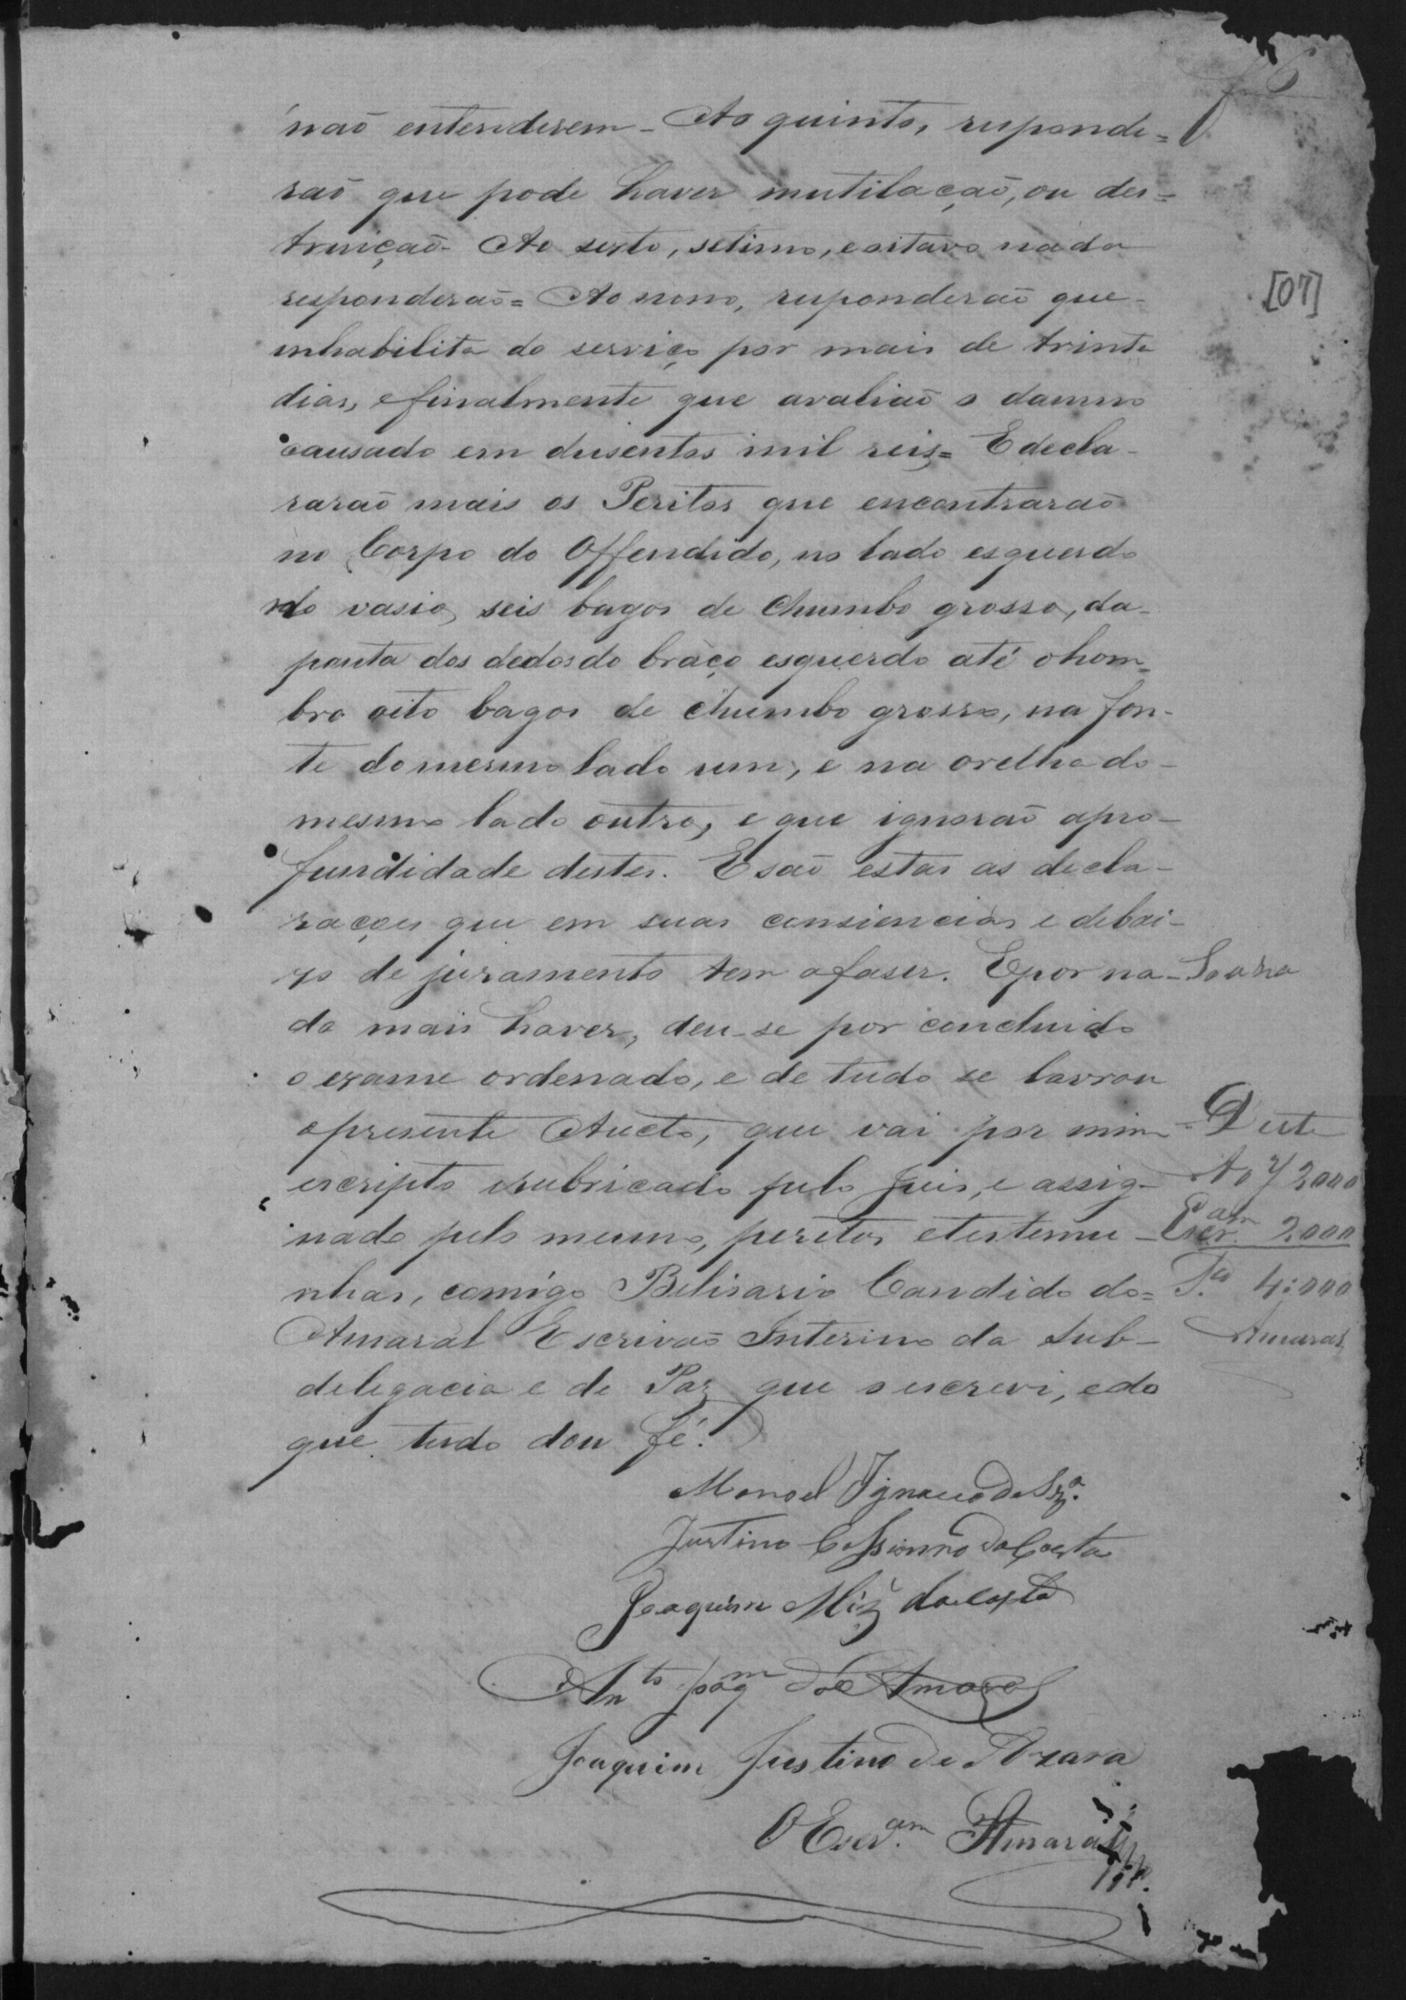 f 6
não entenderem - Ao quinto, responde=
rão que pode haver mutilação, ou des=
truição - Ao sexto, setimo, e oitavo nada
responderão = Ao nono, responderão que
[07]
inhabilita do serviço por mais de trinta
dias, e finalmente que avalião o damno
causado em dusentos mil reis = E decla-
rarão mais os Peritos que encontrarão
no Corpo do Offendido, no lado esquerdo
do vasio, seis bagos de chumbo grosso, da
ponta dos dedos do braço esquerdo até o hom=
bro oito bagos de chumbo grosso, na fon-
te do mesmo lado um, e na orelha do
mesmo lado outro, e que ignorão a pro-
fundidade destes. E são estas as decla-
rações que em suas consiencias e debai-
xo de juramento tem a faser. E por na-
Souza
da mais haver, deu-se por concluido
o exame ordenado, e de tudo se lavrou
o presente Aucto, que vai por mim
escripto e rubricado pelo Juis, e assig-
nado pelo mesmo, peritos e testemu-
nhas, comigo Belisario Candido do=
Amaral Escrivão Interino da Sub-
delegacia e de Paz que o escrevi, e do
que tudo dou fé.
Deste
Ao J 2,000
Escr.am 2.000
T.a 4:000
Amaral
Manoel Ignacio de Sz.a
Justino Cassianno da Costa
Joaquim Miz da Costa
An.to Joaq.m do Amaral
Joaquim Justino de Azara
O Escr.am Amaral